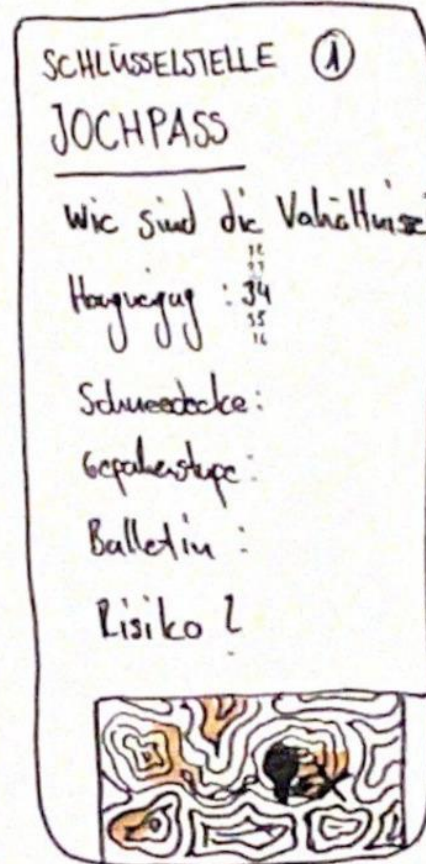 SCHLÜSSELSTELLE 1
JOCHPASS
Wie sind die Verhältnisse
Hangneigug : 34
35
Schneedecke:
Gefahrenstufe:
Bulletin :
Risiko ?